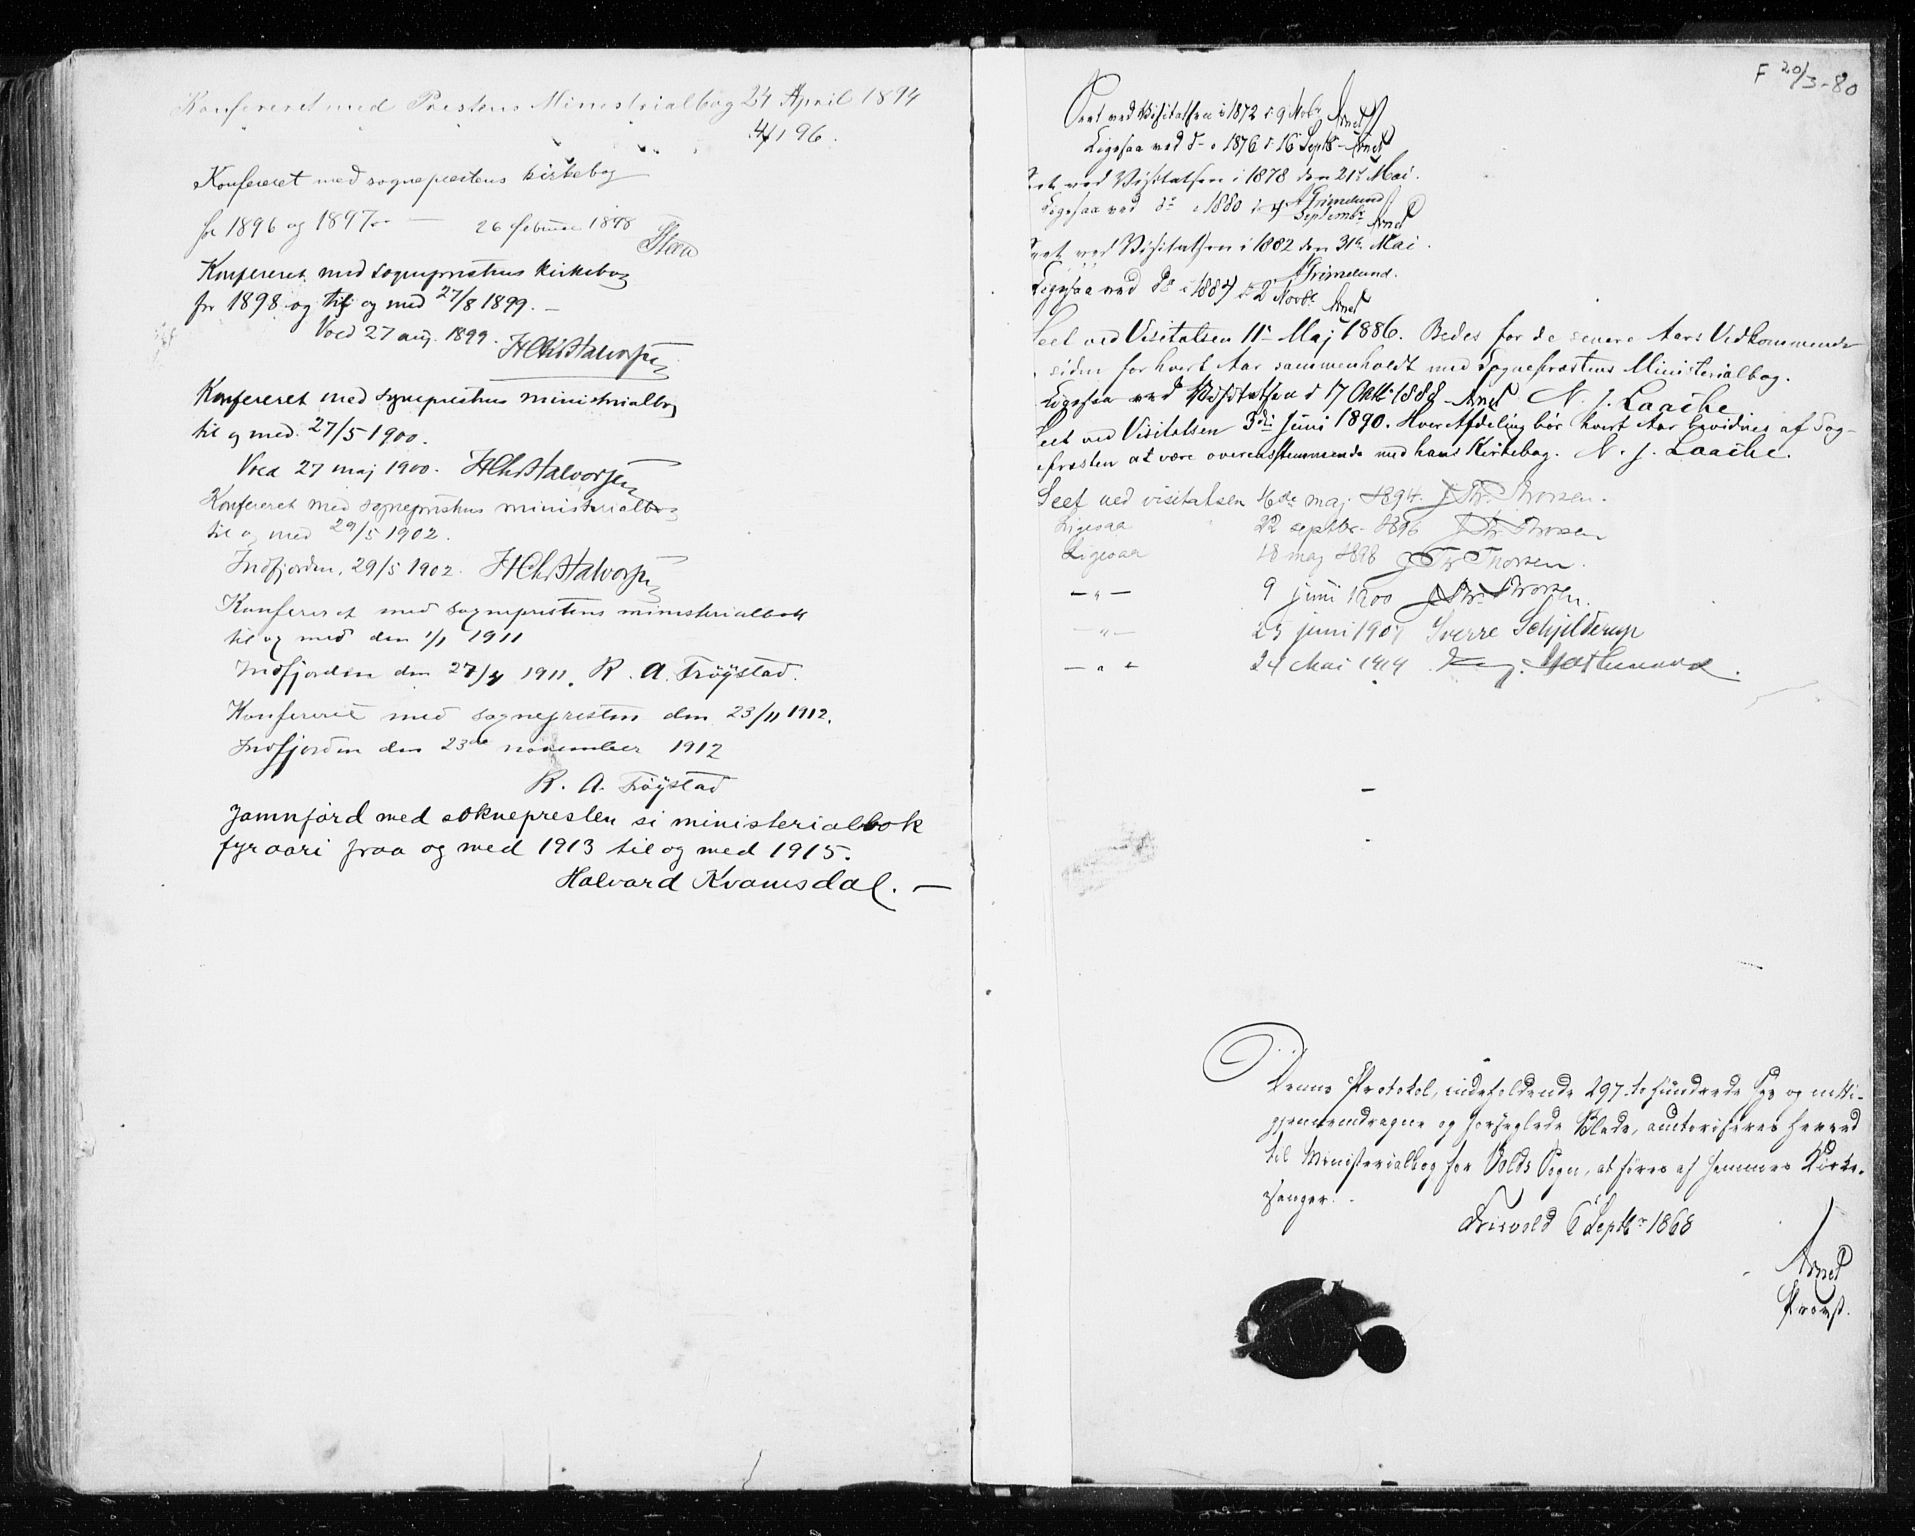 Konfereret med Prestens Ministerialbog 24 April 1894
" " " " 4/1 96.
Konfereret med sogneprestens kirkebog
for 1896 og 1897. — 26 februar 1898
Konfereret med sogneprestens kirkebog
for 1898 og til og med 27/8 1899. —
Vold 27 aug. 1899. H Chr Halvorsen
Konfereret med sogneprestens ministerialbog
til og med 27/5 1900.
Vold 27 maj 1900. H Chr Halvorsen
Konfereret med sogneprestens ministerialbog
til og med 29/5 1902.
Indfjorden, 29/5 1902. H Chr Halvorsen
Konfereret med sogneprestens ministerialbok
til og med den 1/1 1911
Indfjorden den 27/4 1911. R. A. Tröystad.
Konfereret med sognepresten den 23/11 1912.
Indfjorden den 23de november 1912
R. A. Tröystad
Jamnförd med soknepresten si ministerialbok
fyr aari fraa og med 1913 til og med 1915.
Halvard Kvamsdal. —
F 20/3-80
Seet ved Visitatsen i 1872 d. 9 Novbr Arnet
Ligesaa ved do i 1876 d. 16 Septb Arnet
Seet ved Visitatsen i 1878 den 21de Mai.
A Grimelund
Ligesaa ved do i 1880 d. 4 Septembr Arnet
Seet ved Visitatsen i 1882 den 31te Mai.
A Grimelund.
Ligesaa ved do i 1884 d. 2 Novbr Arnet
Seet ved Visitatsen 11te Maj 1886. Bedes for de senere Aars Vedkommende
siden for hvert Aar sammenholdt med Sogneprestens Ministerialbog.
Ligesaa ved Visitatsen d 17 Oktb 1888 Arnet N. J. Laache
Seet ved Visitatsen 3die Juni 1890. Hver Afdeling bør hvert Aar bevidnes af Sog-
nepræsten at være overensstemmende med hans Kirkebog. N. J. Laache.
Seet ved visitatsen 16de maj 1894. J Thr. Thorsen.
Ligesaa 22 septbr. 1896 J Thr. Thorsen
Ligesaa 18 maj 1898 J Thr Thorsen.
— " — 9 juni 1900 J Thr. Thorsen.
— " — 25 juni 1907 Sverre Schjelderup
— " — 24 Mai 1914
Denne Protokol, indeholdende 297 to hundrede syv og nitti
gjennemdragne og forseglede Blade, autoriseres herved
til Ministerialbog for Volds Sogn, at føres af sammes Kirke-
sanger.
Frisvold 6 Septbr 1868
Arnet
Provst.